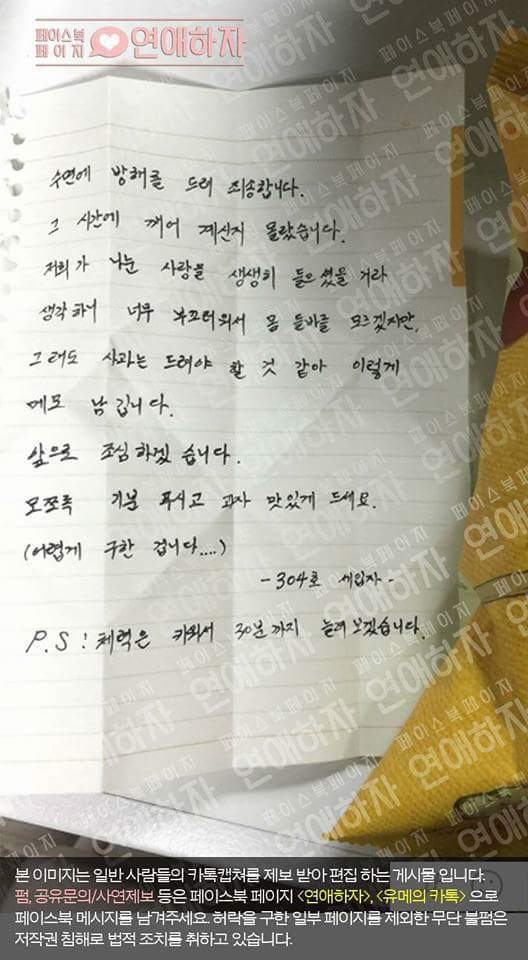 페이스북
페이지
연애하자
수면에 방해를 드려 죄송합니다.
그 시간에 깨어 계신지 몰랐습니다.
저희가 나눈 사랑을 생생히 들으셨을 거라
생각하니 너무 부끄러워서 몸 둘바를 모르겠지만,
그래도 사과는 드려야 할 것 같아 이렇게
메모 남깁니다.
앞으로 조심하겠습니다.
모쪼록 기분 푸시고 과자 맛있게 드세요.
(어렵게 구한 겁니다....)
-304호 세입자-
P.S : 체력은 키워서 30분까지 늘려보겠습니다.
본 이미지는 일반 사람들의 카톡캡쳐를 제보 받아 편집 하는 게시물 입니다.
펌, 공유문의/사연제보 등은 페이스북 페이지 <연애하자>, <유메의 카톡> 으로
페이스북 메시지를 남겨주세요. 허락을 구한 일부 페이지를 제외한 무단 불펌은
저작권 침해로 법적 조치를 취하고 있습니다.